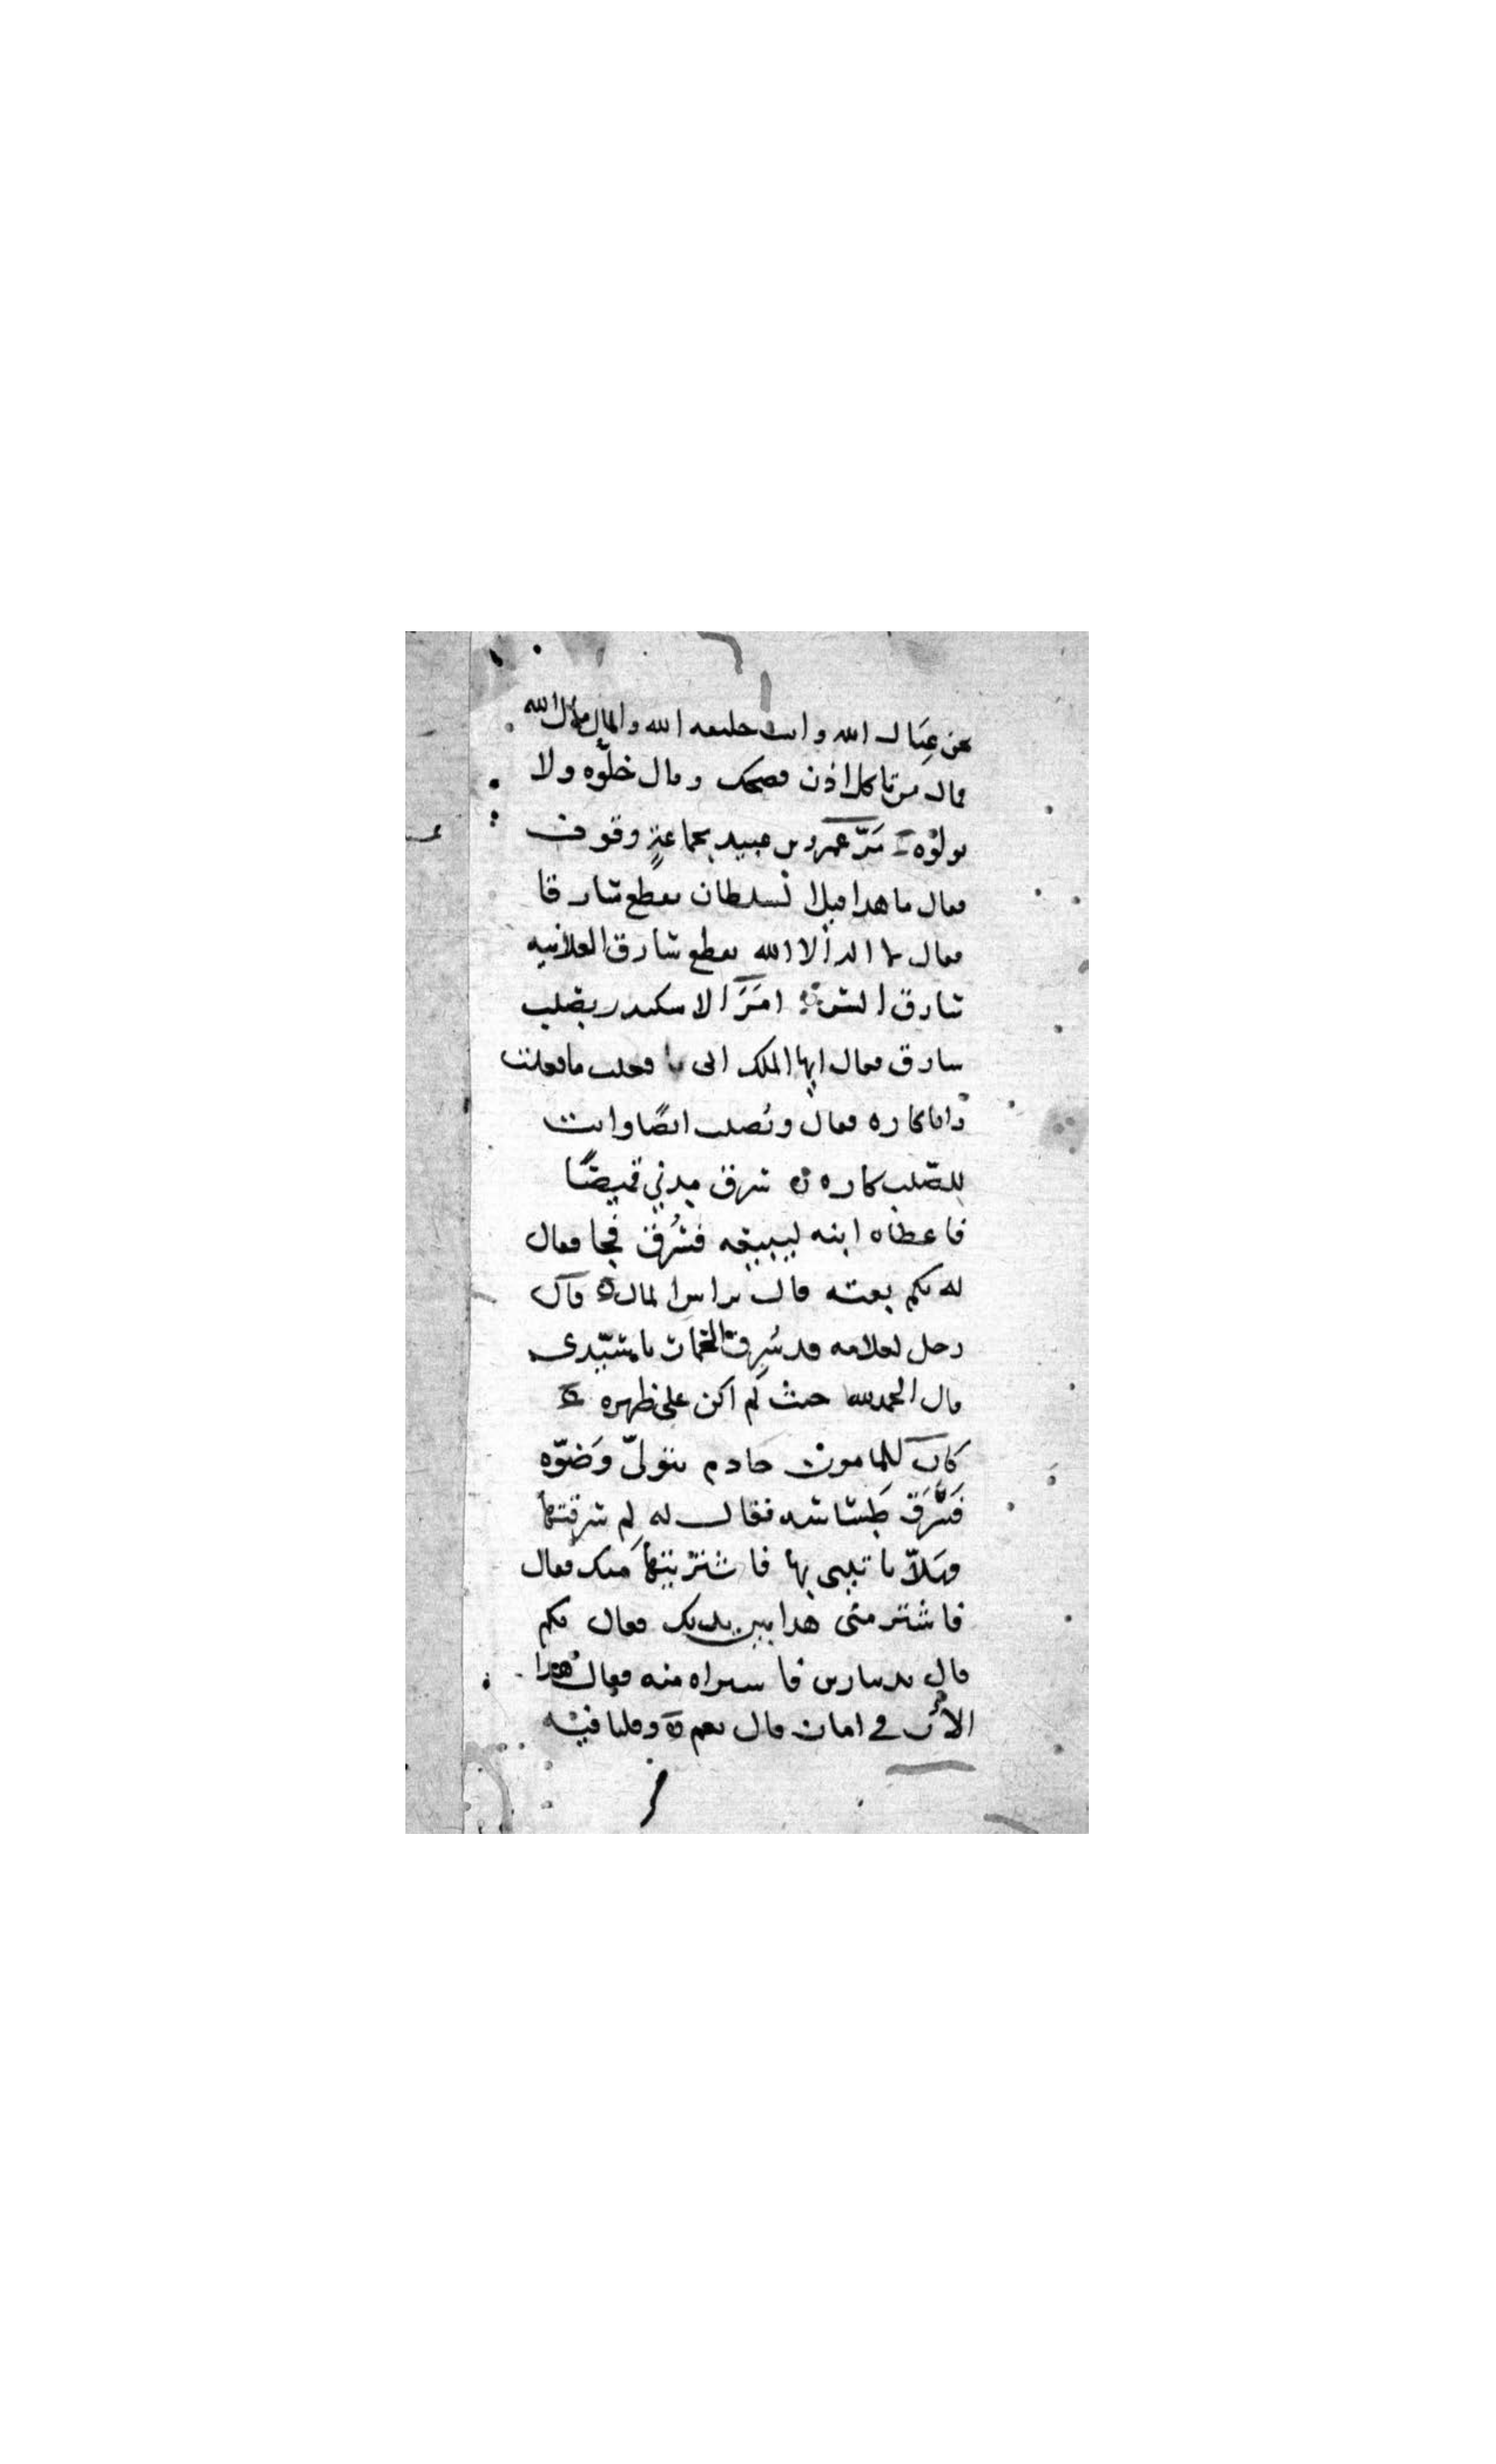 نحن عيال الله وانت خليفه الله والمال مال الله
قال من تاكل اذن فضحك وقال خلّوه ولا
تولوه مَرّ عمرو بن عبيد بجماعةٍ وقوف
فقال ما هذا قيل السلطان يقطع سارقا
فقال لا اله الا الله يقطع سارق العلانيه
سارق السر امَرَ الاسكندر بصلب
سارق فقال ايها الملك انى فعلت ما فعلت
وانا كاره فقال وتُصلب ايضًا وانت
للصّلب كاره سرق مدني قميصًا
فاعطاه ابنه ليبيعه فسُرق فجا فقال
له بكم بعته قال براس المال قال
رجل لغلامه قد سُرِق الحمار يا سيّدي
قال الحمد لله حيث لم اكن على ظهره
كان للمامون خادم يتولّى وَضوّه
فَسَرَق طِسَاسه فقال له لِم سرقتها
فهلّا تاتينى بها فاشتريتها منك فقال
فاشتر منى هذا بين يديك فقال بكم
قال بدينارين فاشتراه منه فقال هذا
الآن في امان قال نعم وقلنا فيه